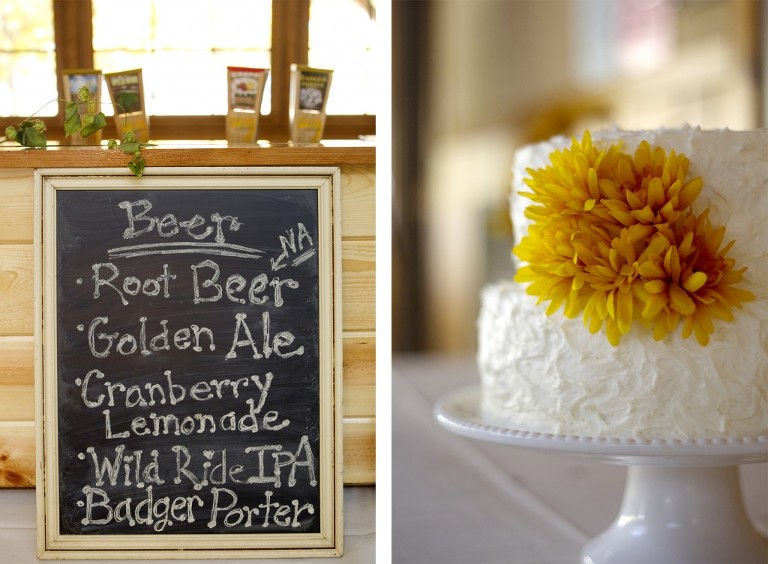 Beer
NA
• Root Beer
• Golden Ale
• Cranberry
Lemonade
• Wild Ride IPA
• Badger Porter